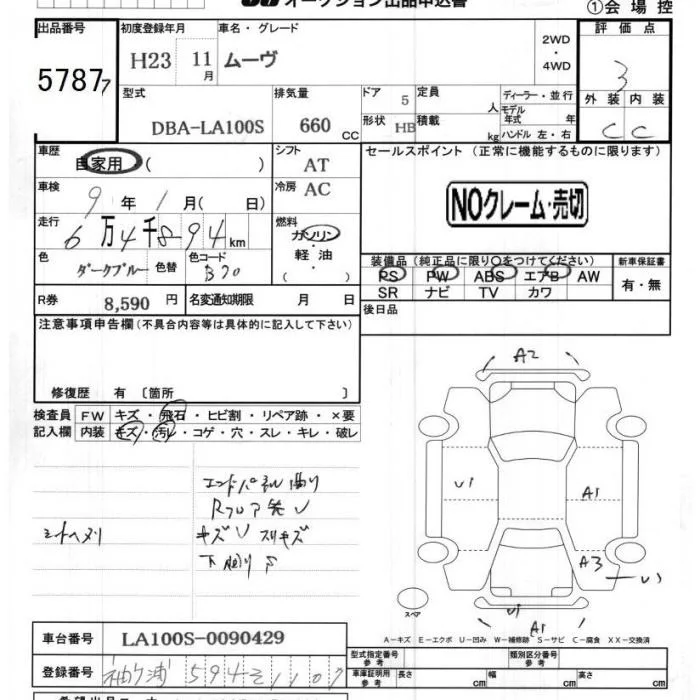 オークション出品申込書
①会場控
出品番号
5787
7
初度登録年月
H23 11月
車名・グレード
ムーヴ
2WD
・
4WD
評価点
3
外装 内装
C C
型式
DBA-LA100S
排気量
660 CC
ドア 5
形状 HB
定員 人
積載 kg
ディーラー・並行
モデル年式 年
ハンドル 左・右
車歴
自家用 ( )
シフト
AT
車検
9年 1月( 日)
冷房
AC
走行
6万4千894km
燃料
ガソリン
・
軽油
( )
色
ダークブルー
色替
色コード
B70
R券 8,590 円
名変通知期限 月 日
セールスポイント (正常に機能するものに限ります)
NOクレーム・売切
装備品(純正品に限り○をつけてください)
PS PW ABS エアB AW
SR ナビ TV カワ
新車保証書
有・無
後日品
注意事項申告欄(不具合内容等は具体的に記入して下さい)
修復歴 有 〔箇所 〕
検査員記入欄
FW キズ・飛石・ヒビ割・リペア跡・×要
内装 キズ・汚レ・コゲ・穴・スレ・キレ・破レ
エンドパネル曲り
Rフロア先U
キズU スリキズ
シートヘタリ
A2
U1
A1
A3
U1
U1
A1
スペア
A－キズ E－エクボ U－凹み W－補修跡 S－サビ C－腐食 XX－交換済
車台番号 LA100S-0090429
登録番号 袖ケ浦 594 そ 1107
型式指定番号
参考
類別区分番号
参考
車庫証明用
参考
長さ cm
幅 cm
高さ cm